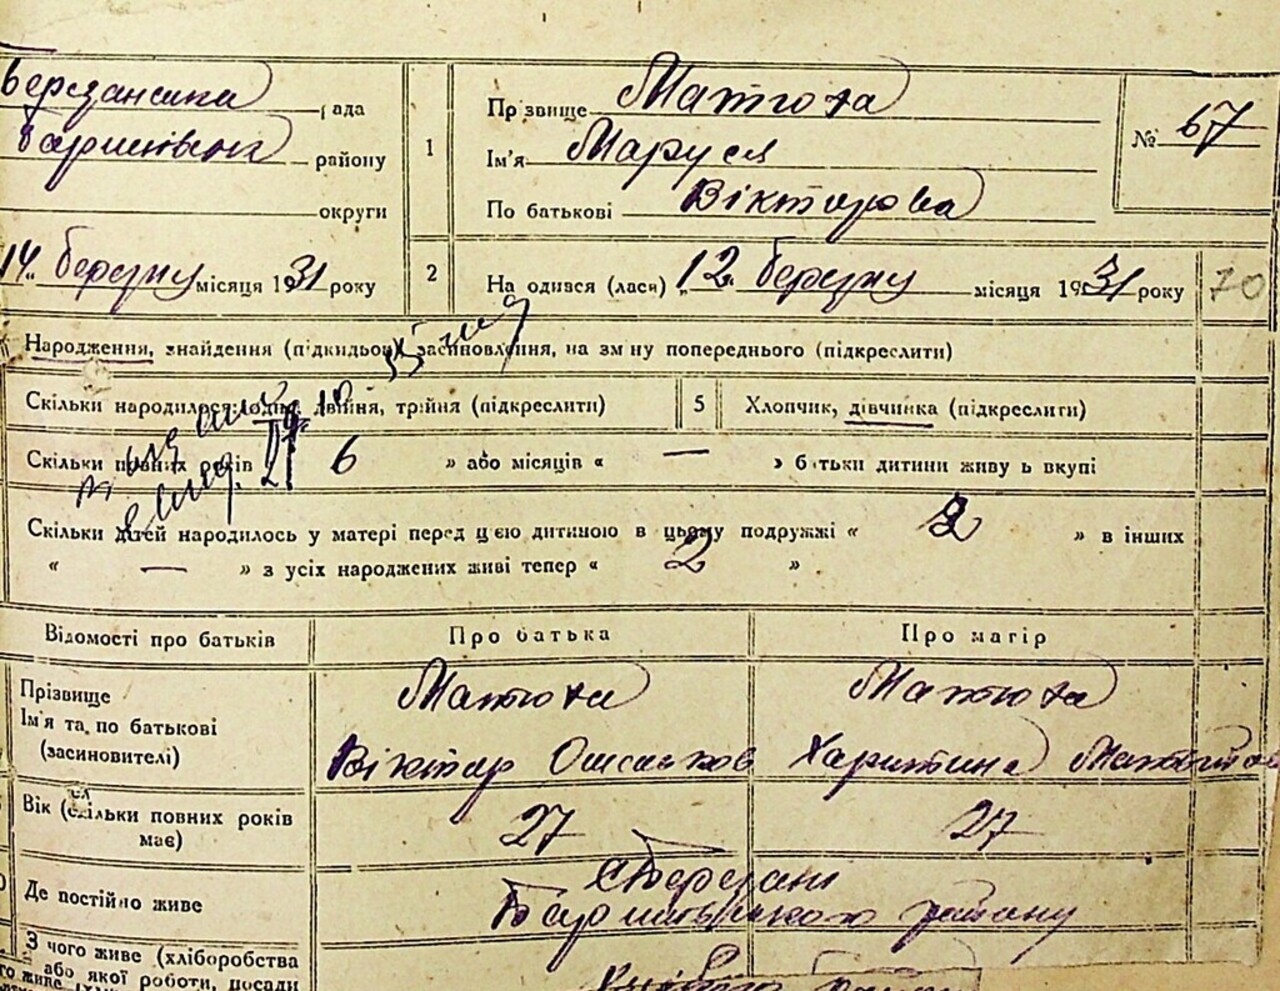 Березанська рада
Баришівськ району
округи
14 березня місяця 1931 року
1
Прізвище Матюха
Ім'я Маруся
По батькові Вікторова
№ 67
2
На одився (лася) „12 березня місяця 1931 року
70
Народження, знайдення (підкидьок) засиновлення, на зм ну попереднього (підкреслити)
Скільки народилося: одна, двійня, трійня (підкреслити)
5 Хлопчик, дівчинка (підкреслити)
Скільки повних років 6 » або місяців « — » б тьки дитини живу ь вкупі
Скільки дітей народилось у матері перед цією дитиною в цьому подружжі « 2 » в інших
« — » з усіх народжених живі тепер « 2 »
Відомості про батьків
Про батька
Про матір
Прізвище
Ім'я та по батькові
(засиновителі)
Матюха
Віктор
Матюха
Харитина
Вік (скільки повних років
має)
27
27
Де постійно живе
с Березані
Баришівського району
З чого живе (хліборобства
або якої роботи, посади